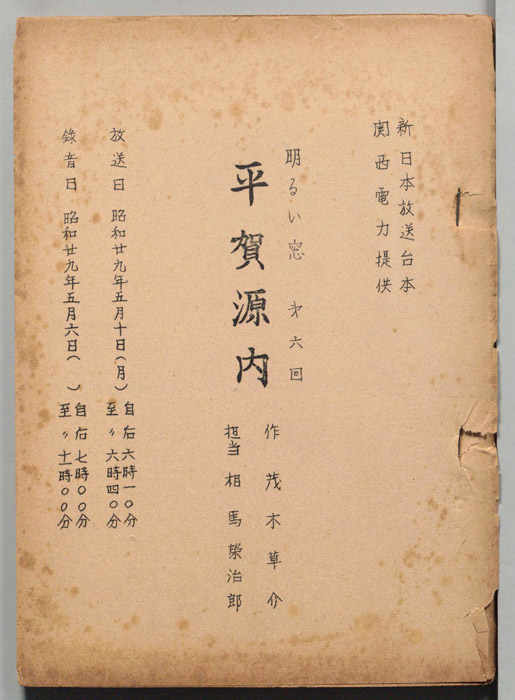 新日本放送台本
関西電力提供
明るい窓 才六回
平賀源内
作 茂木草介
担当 相馬榮治郎
放送日 昭和廿九年五月十日(月) 自后六時一〇分
至〃六時四〇分
錄音日 昭和廿九年五月六日( ) 自后七時〇〇分
至〃十一時〇〇分